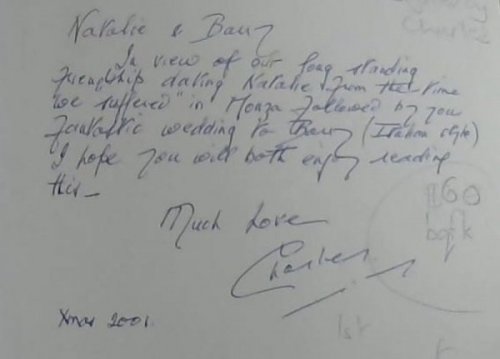 Natalie & Barry
In view of our long standing
friendship dating Natalie from the time
we "suffered" in Monza followed by your
fantastic wedding to Barry (Italian style)
I hope you will both enjoy reading
this_
Much Love
Charles
Xmas 2001.
Charles
160
book
1st